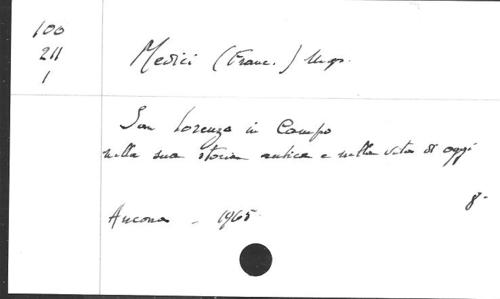 100
211
1
Medici (Franc.) Mgr.
San Lorenzo in Campo
nella sua storia antica e nella vita di oggi
8°
Ancona - 1965